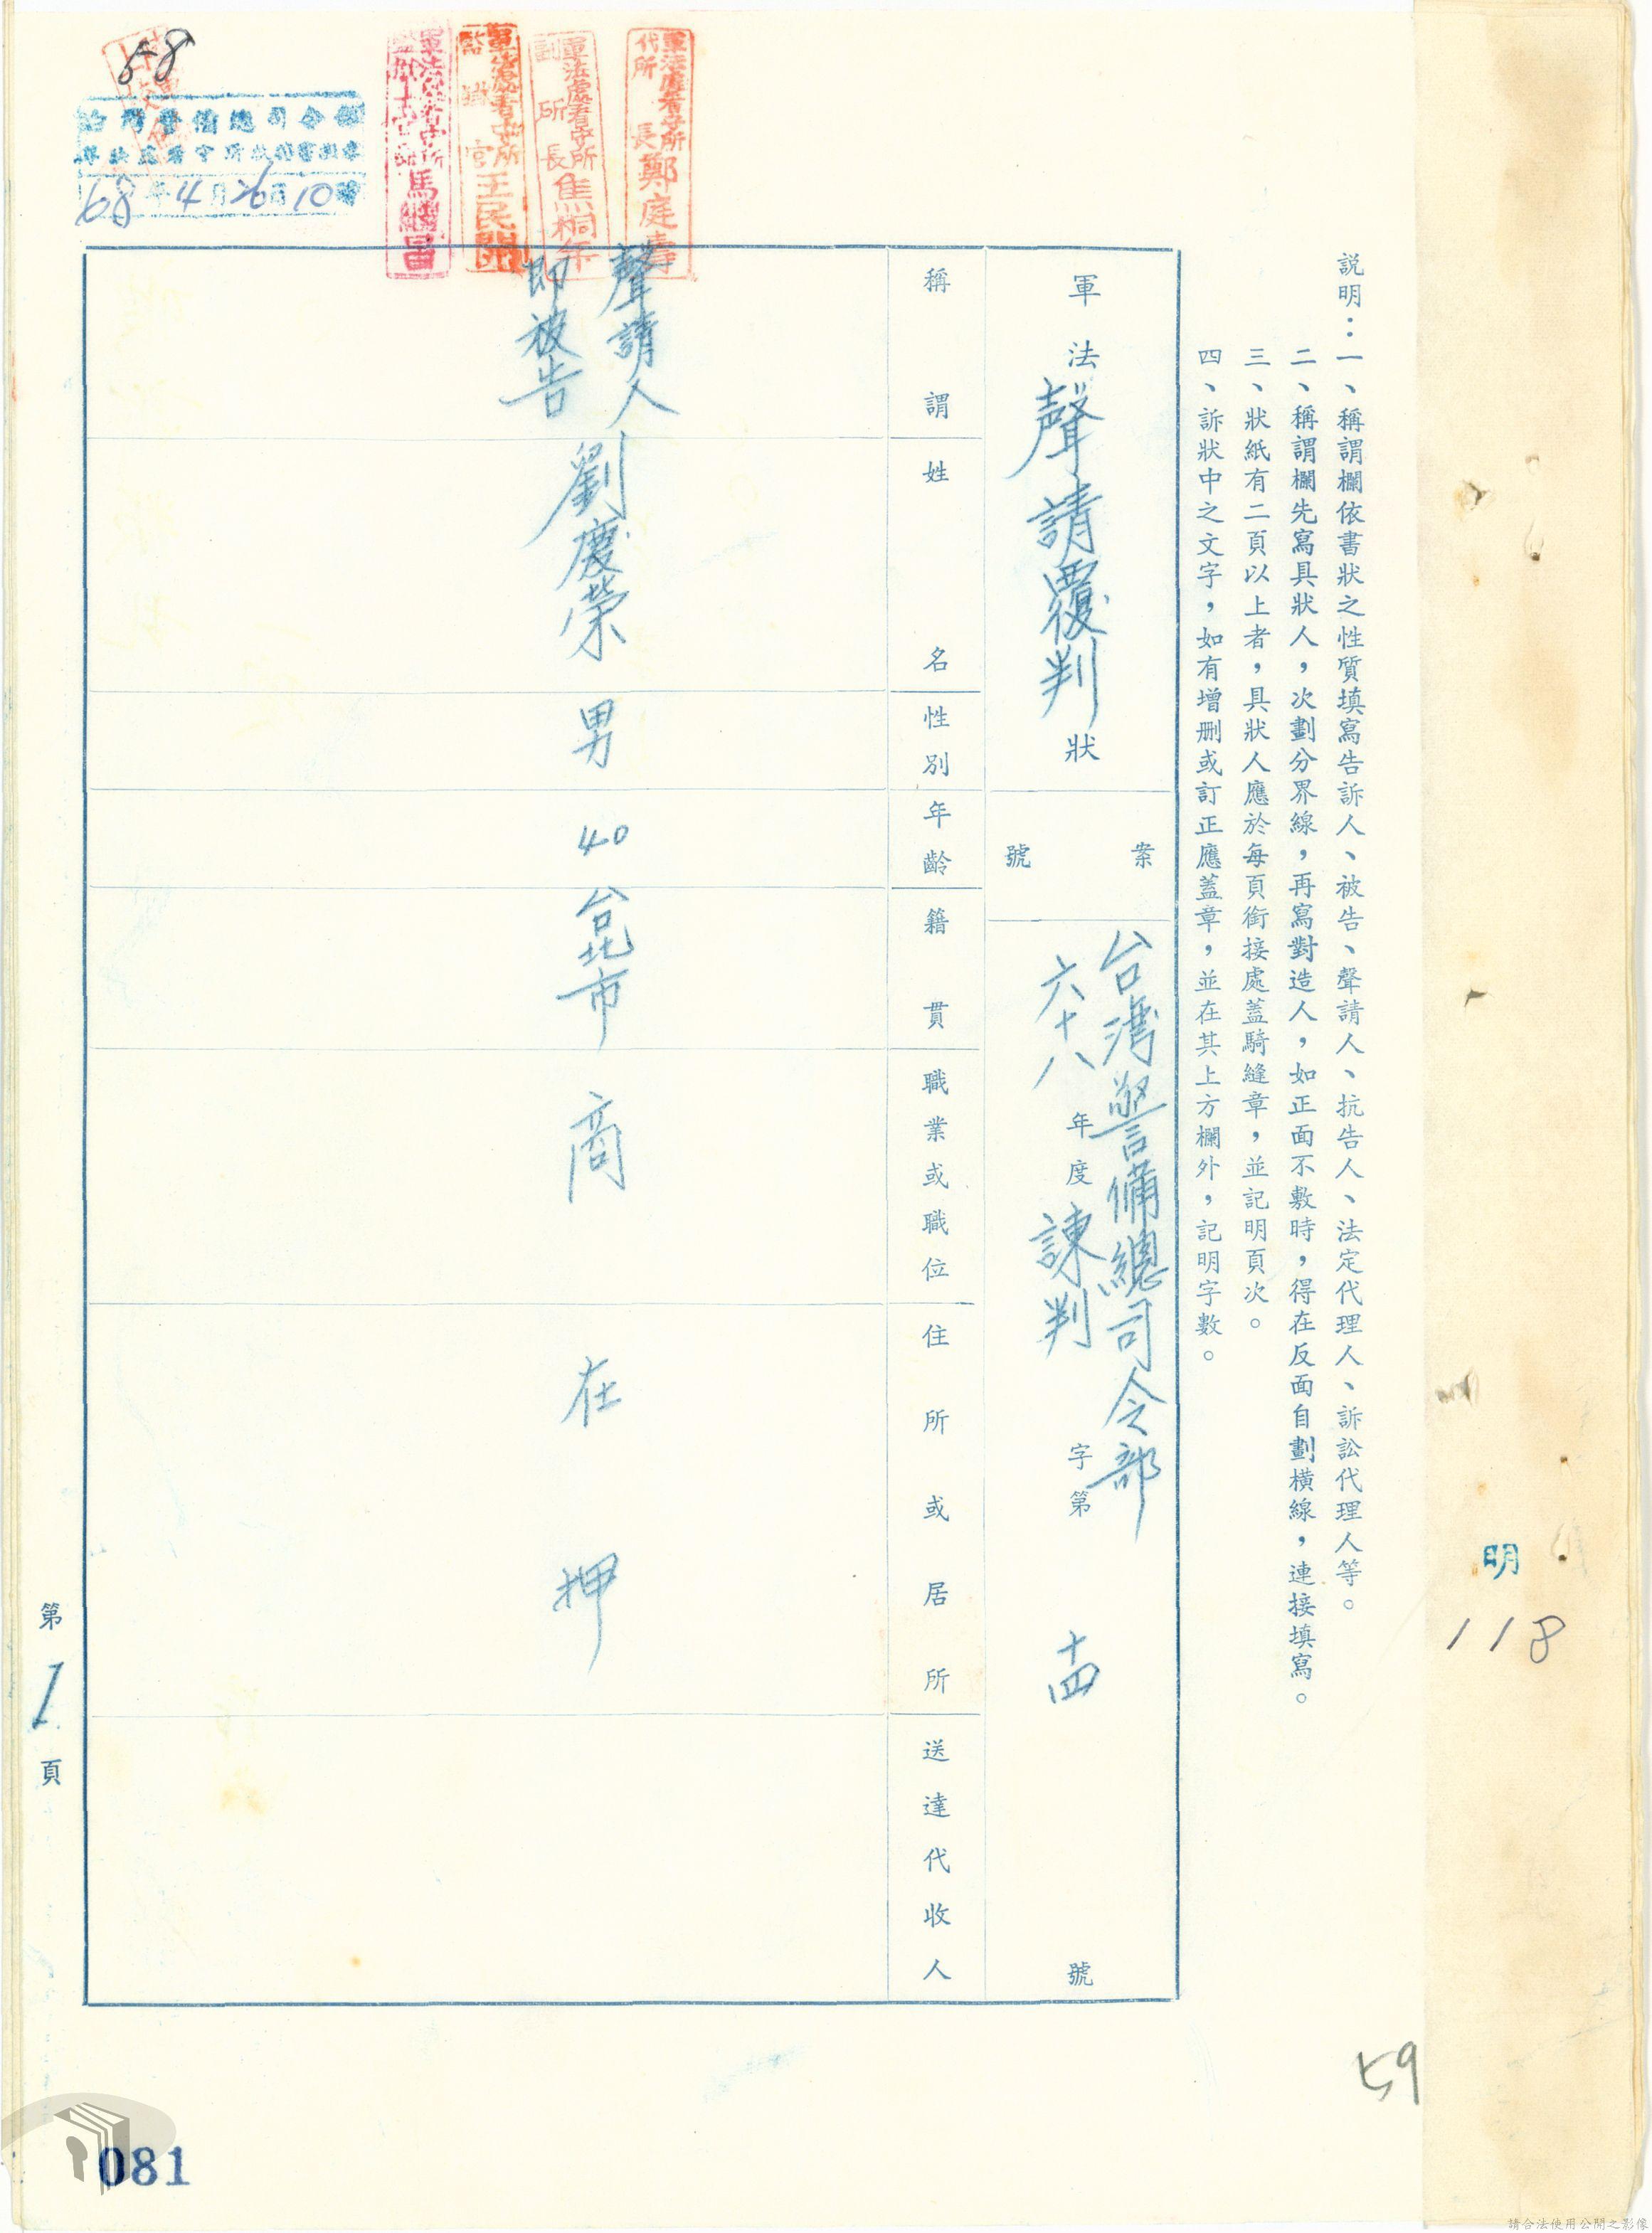 說明：一、稱謂欄依書狀之性質填寫告訴人、被告、聲請人、抗告人、法定代理人、訴訟代理人等。
二、稱謂欄先寫具狀人，次劃分界線，再寫對造人，如正面不敷時，得在反面自劃橫線，連接填寫。
三、狀紙有二頁以上者，具狀人應於每頁銜接處蓋騎縫章，並記明頁次。
四、訴狀中之文字，如有增删或訂正應蓋章，並在其上方欄外，記明字數。
軍法聲請覆判狀
案號
台灣警備總司令部
六十八年度諫判字第十四號
稱謂
姓名
性別
年齡
籍貫
職業或職位
住所或居所
送達代收人
聲請人
即被告
劉慶榮
男
40
台北市
商
在押
軍法處看守所
代所長鄭庭壽
軍法處看守所
副所長焦桐年
軍法處看守所
監獄官王民開
馬繼昌
58
台灣警備總司令部
68年4月26日10時
第1頁
明
118
59
081
請合法使用公開之影像